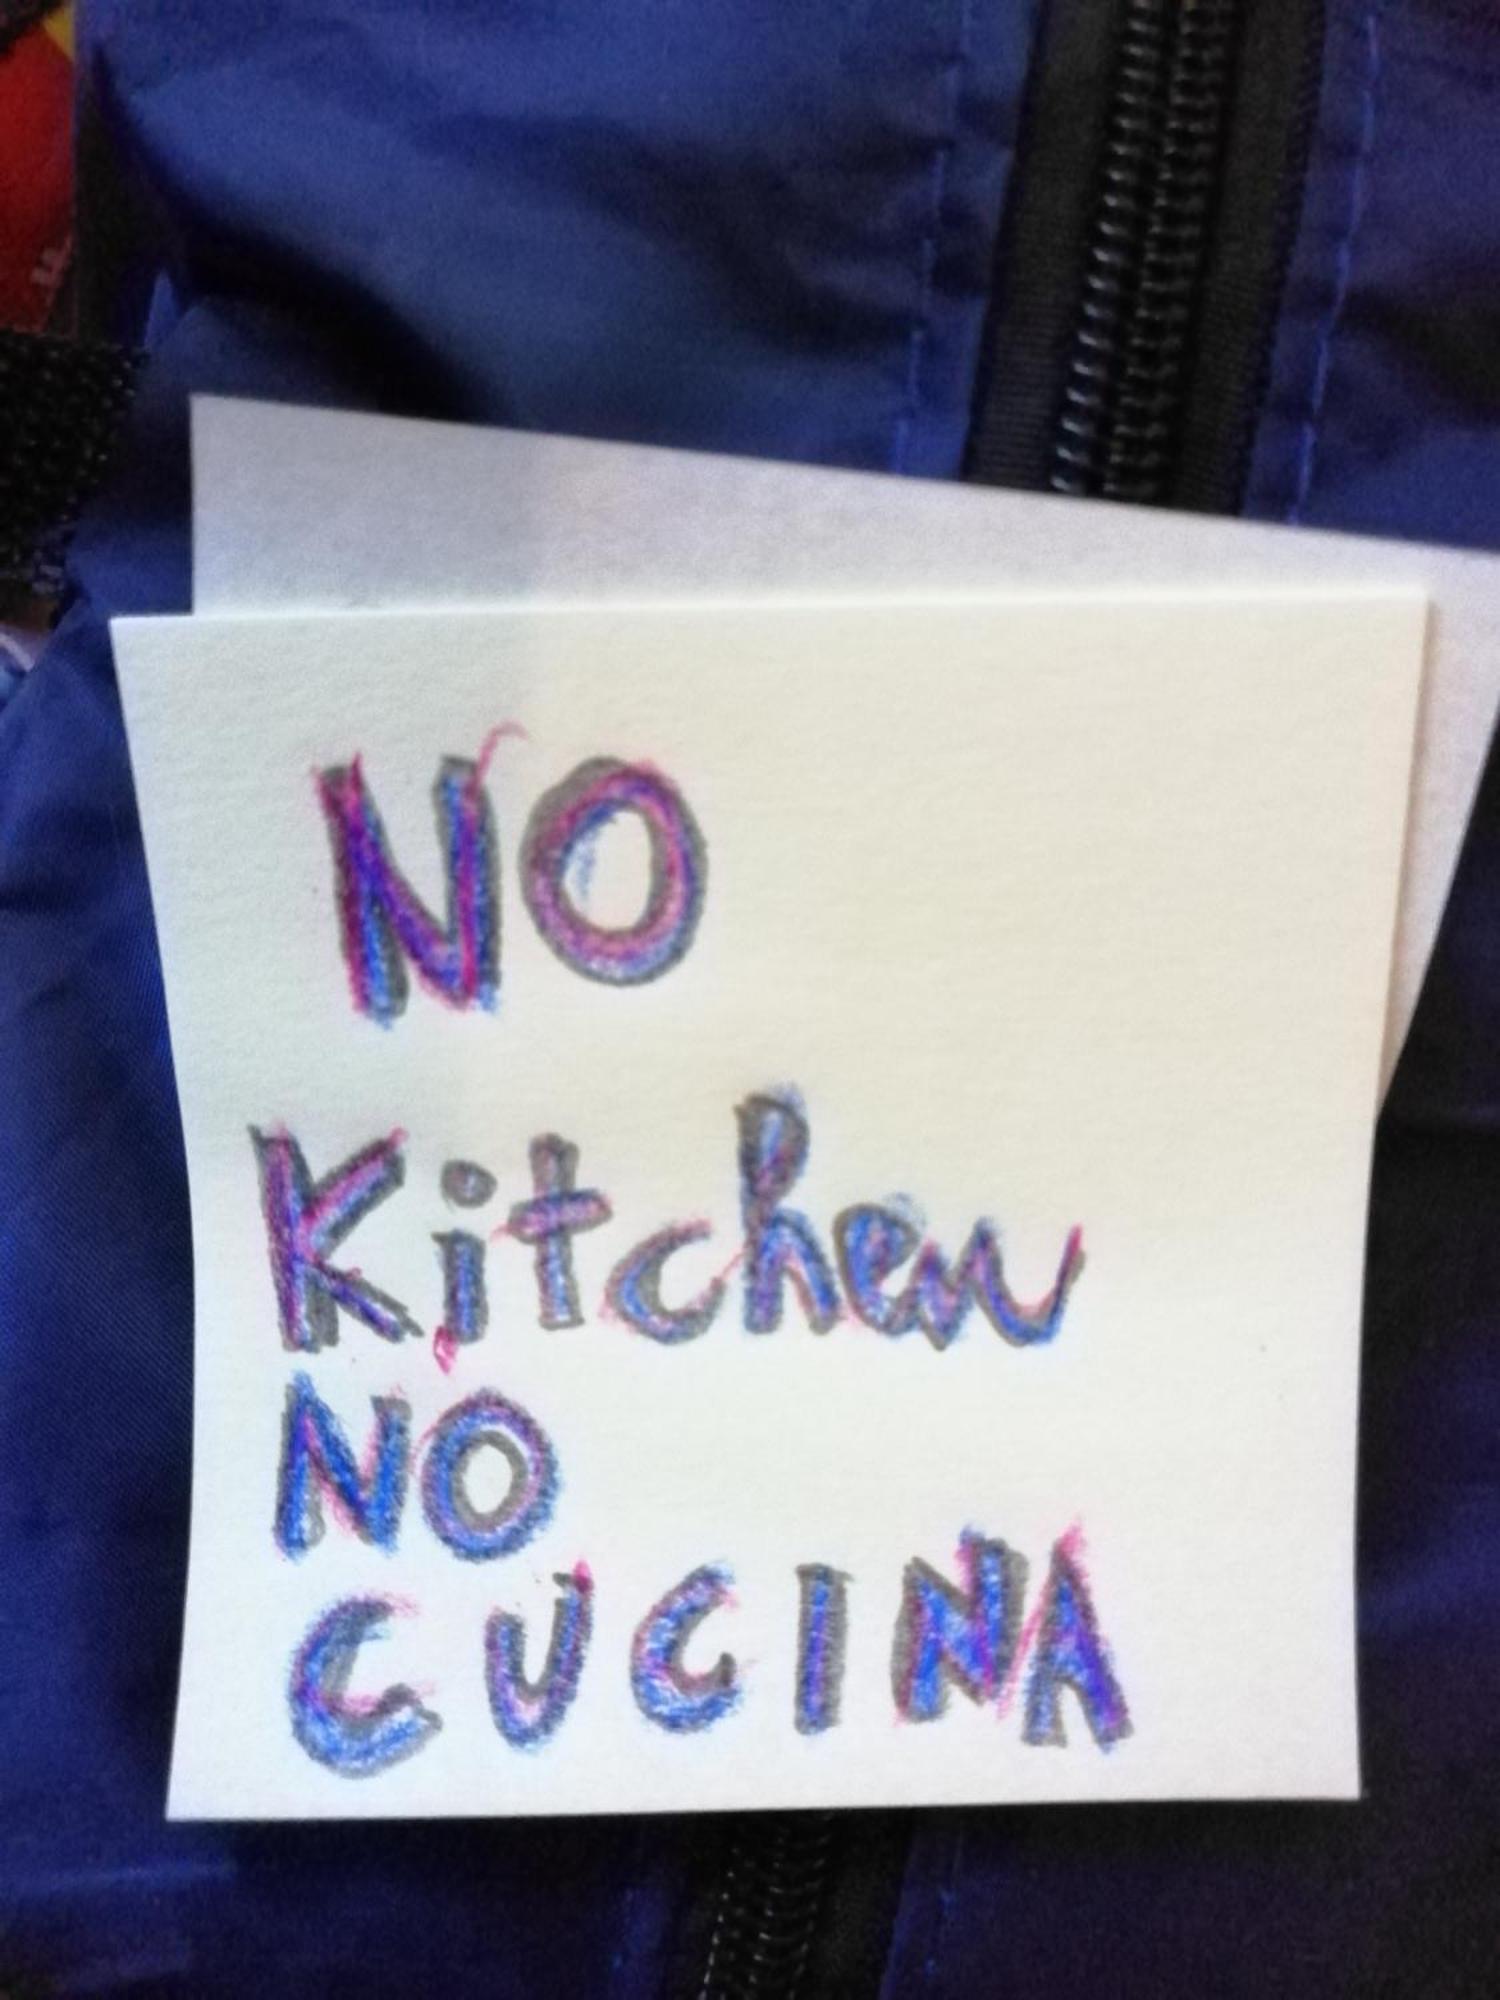 NO
Kitchen
NO
CUCINA